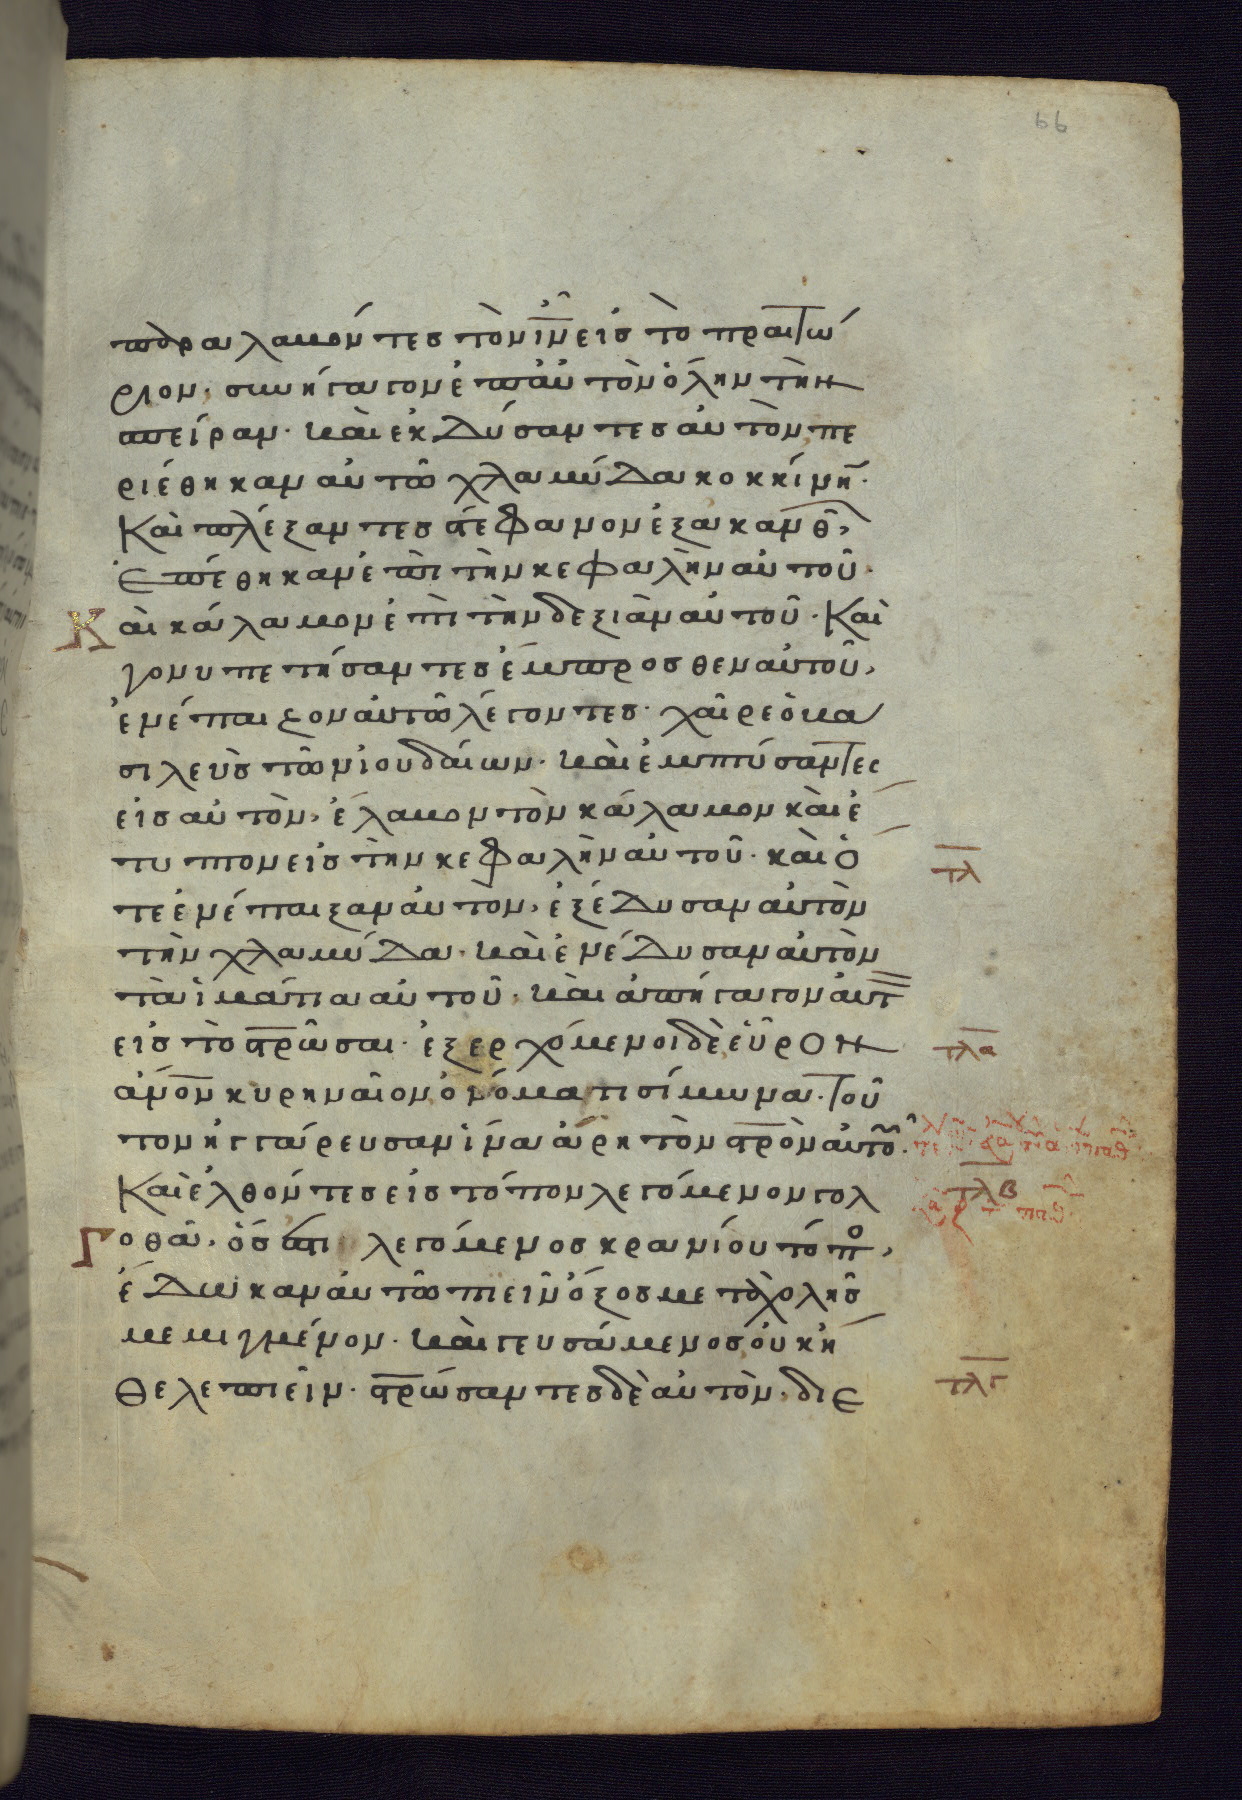 66
παραλαβόντες τὸν ι̅ν̅ εἰς τὸ πραιτώ
ριον· συνήγαγον ἐπ αὐτὸν ὅλην τὴν
σπείραν· καὶ ἐκδύσαντες αὐτὸν, πε
ριέθηκαν αὐτῶ χλαμύδα κοκκίνην·
Καὶ πλέξαντες στέφανον ἐξ ακανθῶν,
ἐπέθηκαν ἐπι τὴν κεφαλὴν αὐτοῦ·
Καὶ κάλαμον ἐπὶ τὴν δεξιὰν αὐτοῦ· Καὶ
γονυπετήσαντες ἔμπροσθεν αὐτοῦ,
ἐνέπαιζον αὐτῶ λέγοντες· χαῖρε ὁ βα
σιλεὺς τῶν ἰουδαίων· καὶ ἐμπτύσαντες
εἰς αὐτὸν, ἔλαβον τὸν κάλαμον καὶ ἔ
τυπτον εἰς τὴν κεφαλὴν αὐτοῦ· καὶ ὅ
τλ
τε ἐνέπαιξαν αὐτὸν, ἐξέδυσαν αὐτὸν
τὴν χλαμύδα· καὶ ἐνέδυσαν αὐτὸν
τὰ ἱμάτια αὐτοῦ· καὶ ἀπήγαγον αὐτ
εἰς τὸ σταυρῶσαι· ἐξερχόμενοι δὲ εὗρον
τλα
ἄνον κυρηναῖον ὀνόματι σίμωνα· τοῦ
τον ἠγγάρευσαν ἵνα ἄρη τὸν στρὸν αὐτοῦ·
Καὶ ἐλθόντες εἰς τόπον λεγόμενον γολ
τλβ
Γοθᾶ· ὅς ἐστι λεγόμενος κρανίου τόπος,
ἔδωκαν αὐτῶ πιεῖν ὄξος μετὰ χολῆς
μεμιγμένον· καὶ γευσάμενος οὐκ ἤ
θελε πιεῖν· στρώσαντες δὲ αὐτὸν, διε
τλγ